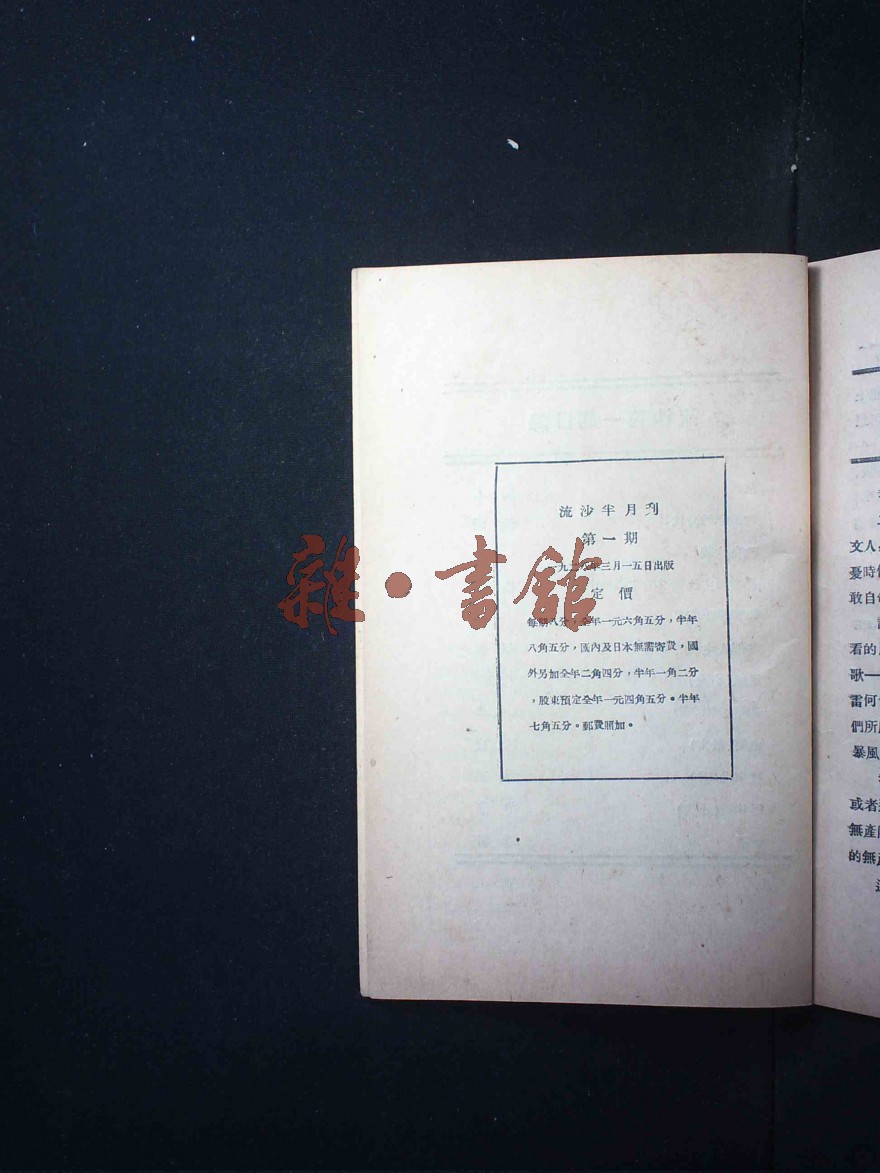 流沙半月刋
第一期
九二八年三月一五日出版
定價
每期八分，全年一元六角五分，半年
八角五分，國內及日本無需寄費，國
外另加全年二角四分，半年一角二分
，股東預定全年一元四角五分。半年
七角五分。郵費照加。
雜·書館
文人
憂時
敢自
看的
歌——
雷何
們所
暴風
或者
無產
的無產